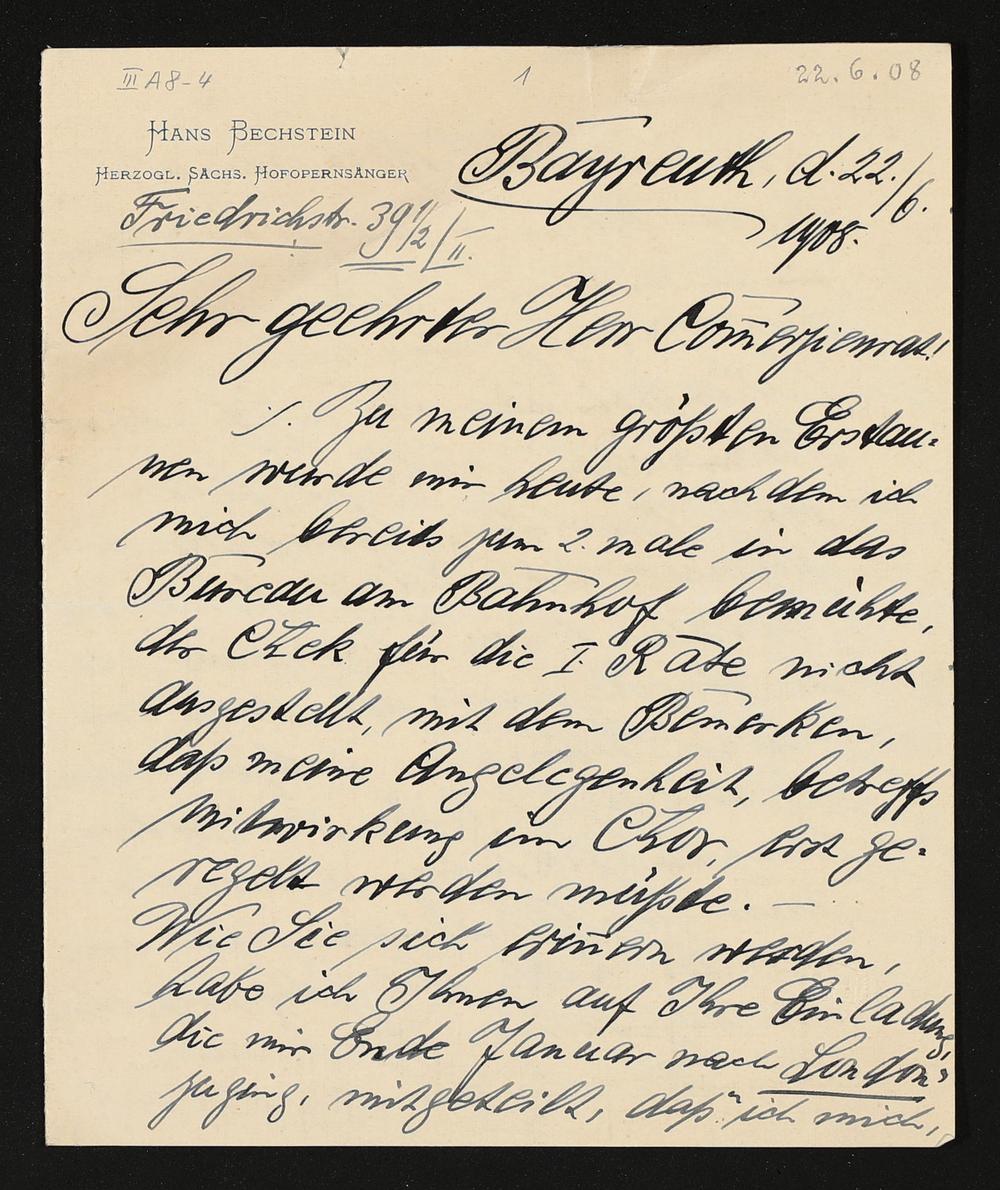 III A8-4
1
22.6.08
HANS BECHSTEIN
HERZOGL. SÄCHS. HOFOPERNSÄNGER
Friedrichstr. 39 1/2 / II.
Bayreuth, d. 22./6.
1908.
Sehr geehrter Herr Com̄erzienrat!
Zu meinem größten Erstau-
nen wurde mir heute, nachdem ich
mich bereits zum 2. male in das
Bureau am Bahnhof bemühte,
der Check für die I. Rate nicht
ausgestellt, mit dem Bemerken,
daß meine Angelegenheit, betreffs
Mitwirkung im Chor, erst ge-
regelt werden müßte. —
Wie Sie sich erin̄ern werden,
habe ich Ihnen auf Ihre Einladung,
die mir Ende Januar nach London
zuging, mitgeteilt, daß ich mich,